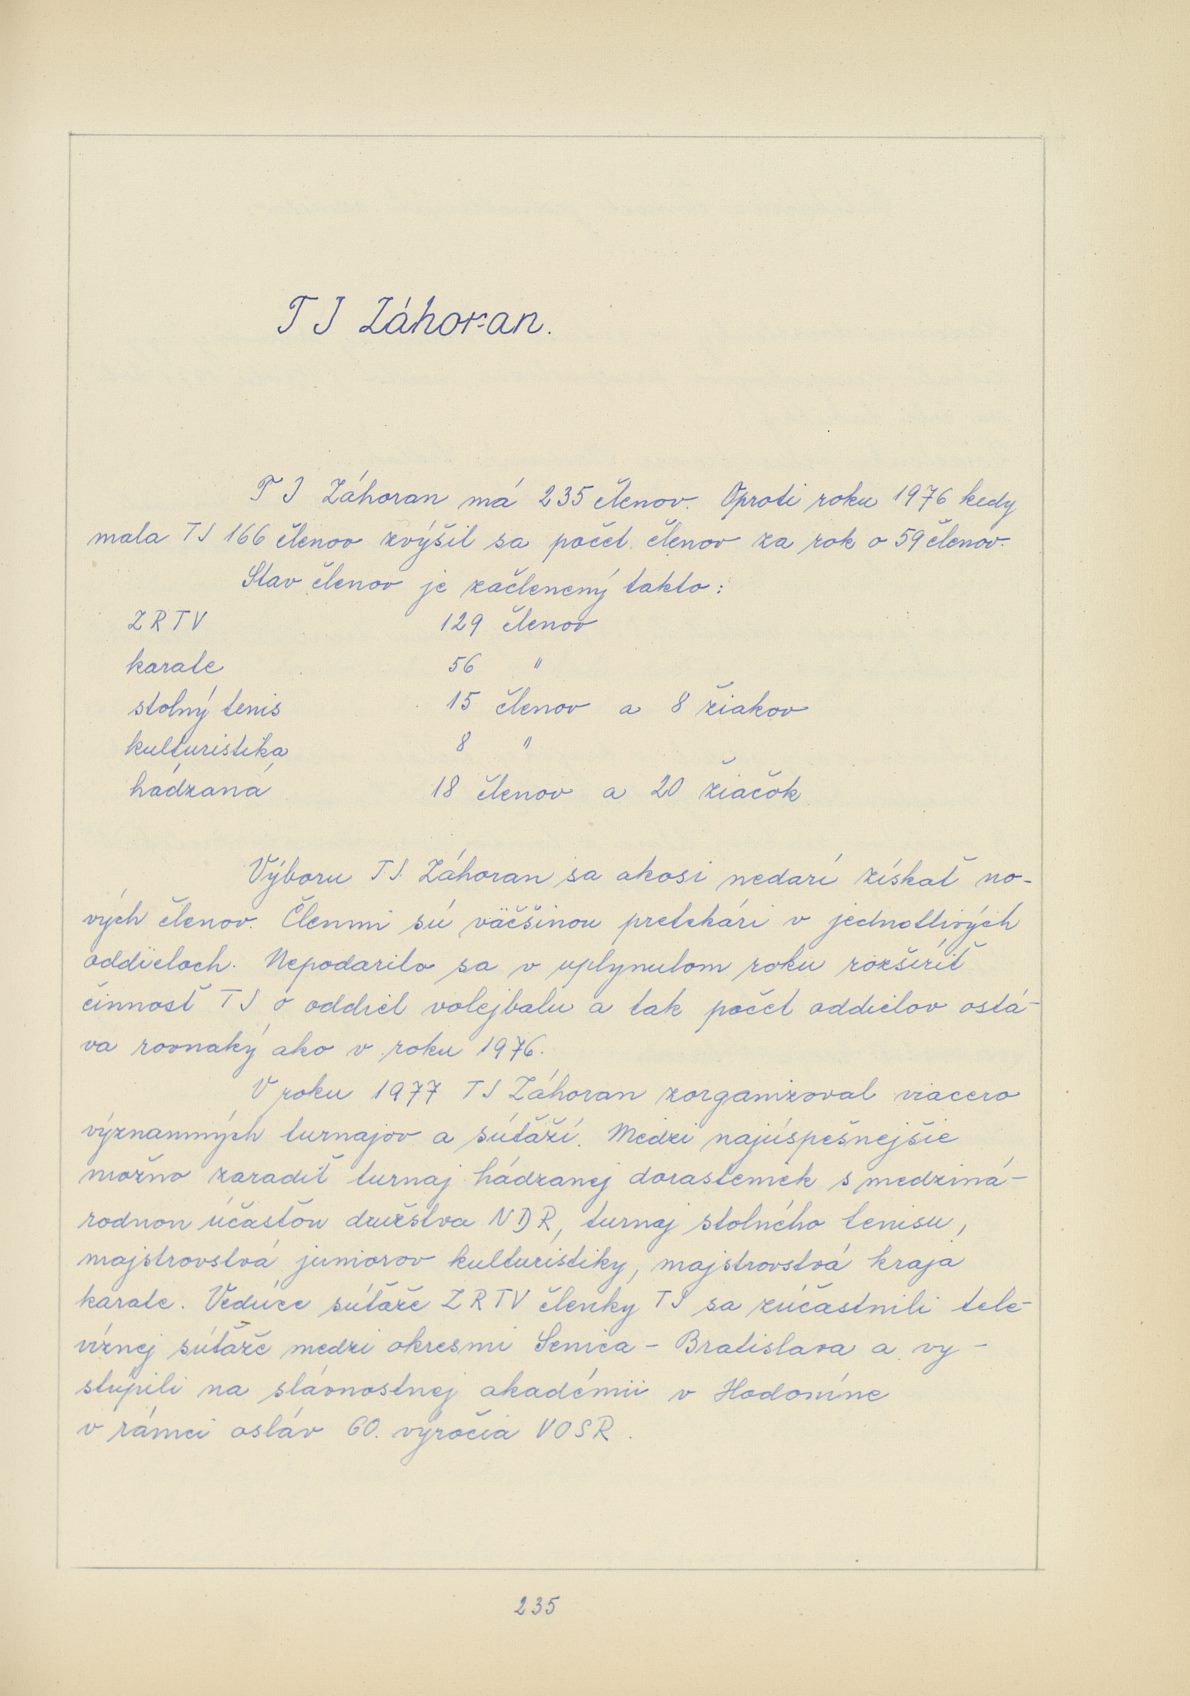 TJ Záhoran.
TJ Záhoran má 235 členov. Oproti roku 1976 kedy
mala TJ 166 členov zvýšil sa počet členov za rok o 59 členov.
Stav členov je začlenený takto:
ZRTV 129 členov
karate 56 "
stolný tenis 15 členov a 8 žiakov
kulturistika 8 "
hádzaná 18 členov a 20 žiačok
Výboru TJ. Záhoran sa akosi nedarí získať no-
vých členov. Členmi sú väčšinou pretekári v jednotlivých
oddieloch. Nepodarilo sa v uplynulom roku rozšíriť
činnosť TJ o oddiel volejbalu a tak počet oddielov ostá-
va rovnaký ako v roku 1976.
V roku 1977 TJ Záhoran zorganizoval viacero
významných turnajov a súťaží. Medzi najúspešnejšie
možno zaradiť turnaj hádzanej dorasteniek s medziná-
rodnou účasťou družstva NDR, turnaj stolného tenisu,
majstrovstvá juniorov kulturistiky, majstrovstvá kraja
karate. Vedúce súťaže ZRTV členky TJ sa zúčastnili tele-
víznej súťaže medzi okresmi Senica - Bratislava a vy-
stúpili na slávnostnej akadémii v Hodoníne
v rámci osláv 60. výročia VOSR.
235